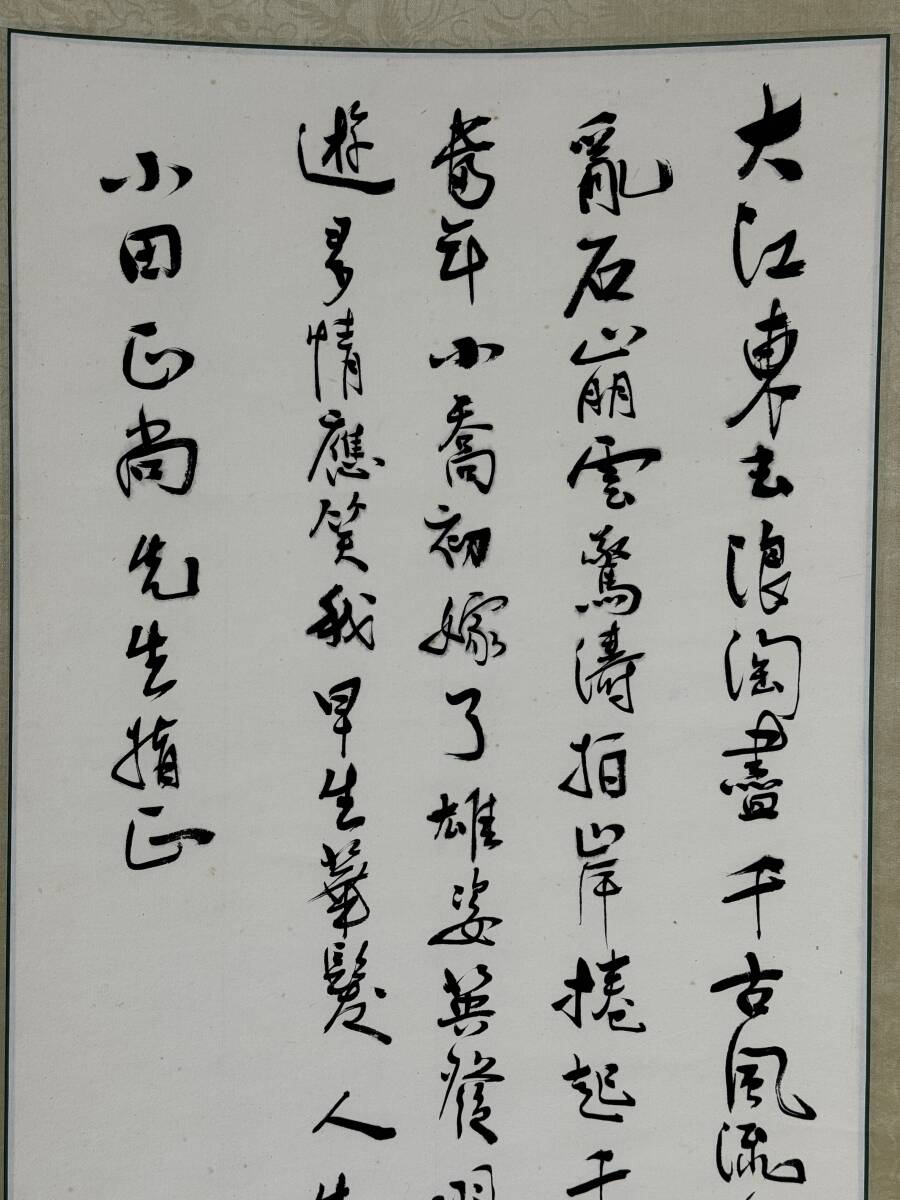 大江東去浪淘盡千古風流
亂石崩雲驚濤拍岸捲起千
當年小喬初嫁了雄姿英發羽
遊多情應笑我早生華髮人生
小田正尚先生指正